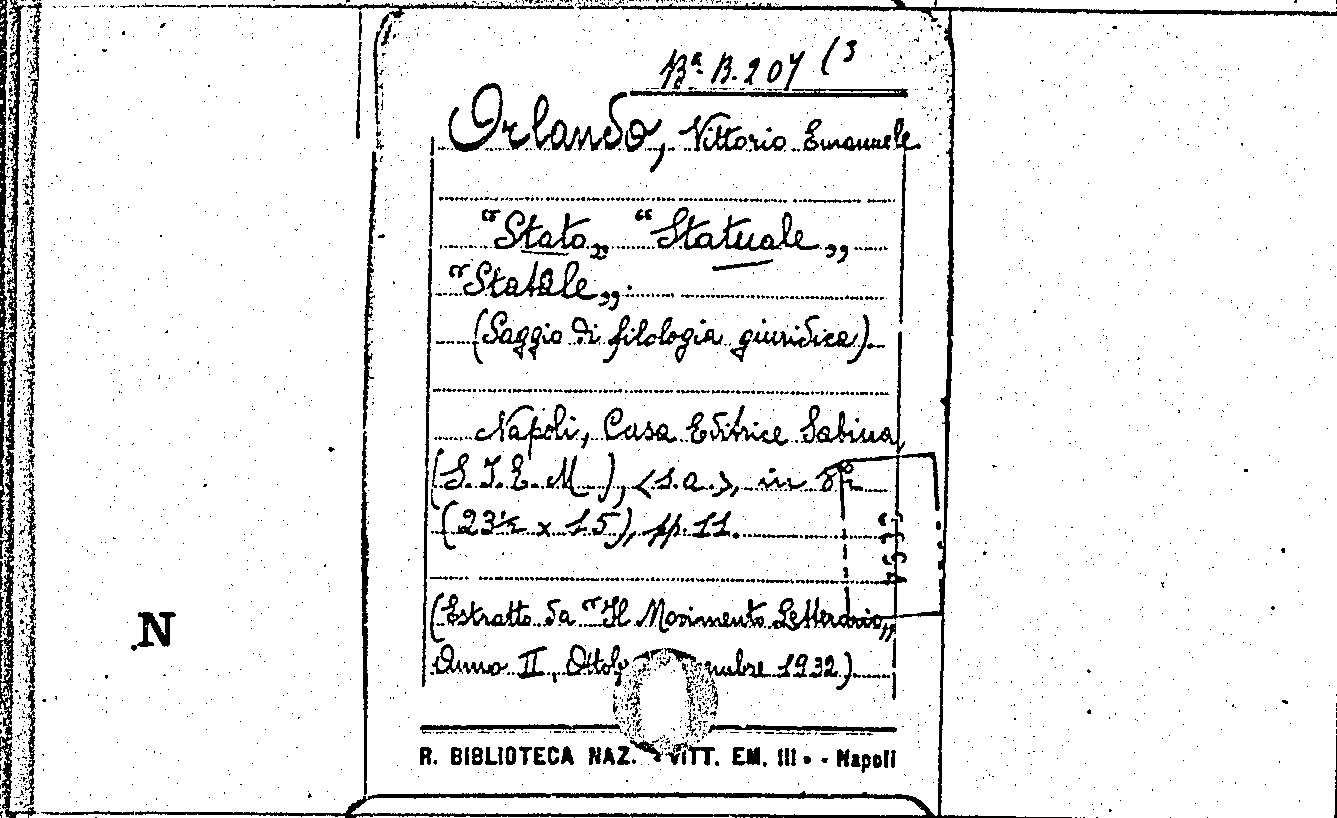 Bª B. 207 (3
Orlando, Vittorio Emanuele
"Stato„ "Statuale„
"Statale„.
(Saggio di filologia giuridica).
Napoli, Casa Editrice Sabina,
(S. I. E. M.), <s.a.>, in 8º
(23½ x 15), pp. 11.
(Estratto da "Il Movimento Letterario„
Anno II, 1932)
R. BIBLIOTECA NAZ. VITT. EM. III - Napoli
N